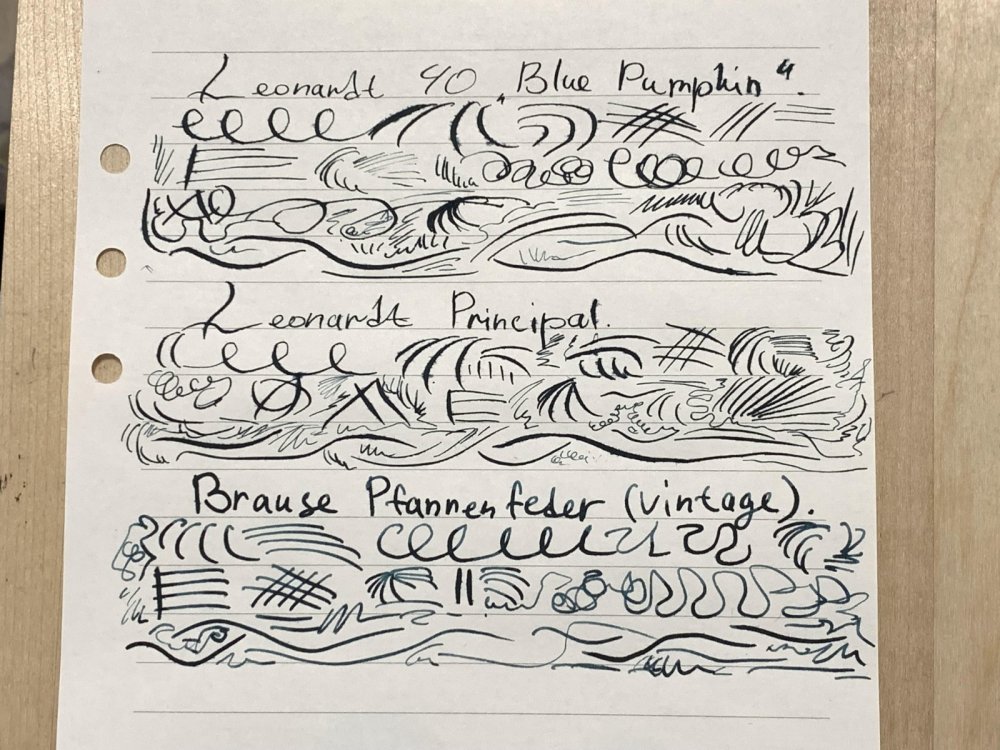 Leonardt 40 „Blue Pumpkin“.
Leonardt Principal.
Brause Pfannenfeder (vintage).